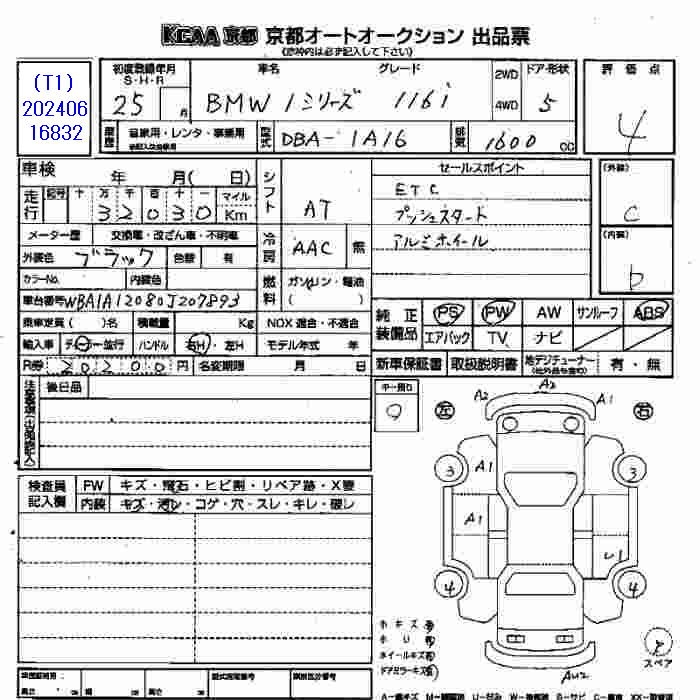 KCAA 京都 京都オートオークション 出品票
(太枠内は必ず記入して下さい)
(T1)
202406
16832
初度登録年月
S・H・R
25 月
車名 グレード
BMW 1シリーズ 116i
2WD
4WD
ドア・形状
5
評価点
4
履歴
自家用・レンタ・事業用
型式
DBA-1A16
排気
1600 CC
車検 年 月( 日)
走行
記号 十 万 千 百 十 一 マイル
3 2 0 3 0 Km
シフト
AT
メーター歴 交換車・改ざん車・不明車
外装色 ブラック 色替 有
冷房
AAC 無
カラーNo. 内装色
燃料
ガソリン・軽油
( )
車台番号 WBA1A12080J207893
乗車定員( )名 積載量 Kg NOX 適合・不適合
輸入車 ディーラー・並行 ハンドル 右H・左H モデル年式 年
R券 20200 円 名変期限 月 日
セールスポイント
ETC
プッシュスタート
アルミホイール
(外装)
C
(内装)
b
純正装備品
PS PW AW サンルーフ ABS
エアバック TV ナビ
新車保証書 取扱説明書 地デジチューナー 有・無
後日品
キー預り
9
左 右
A2 A2 A1
3 A1 3
A1
4 4
AW2
検査員記入欄
FW キズ・飛石・ヒビ割・リペア跡・X要
内装 キズ・汚レ・コゲ・穴・スレ・キレ・破レ
ホイールキズ
ドアミラーキズ
スペア